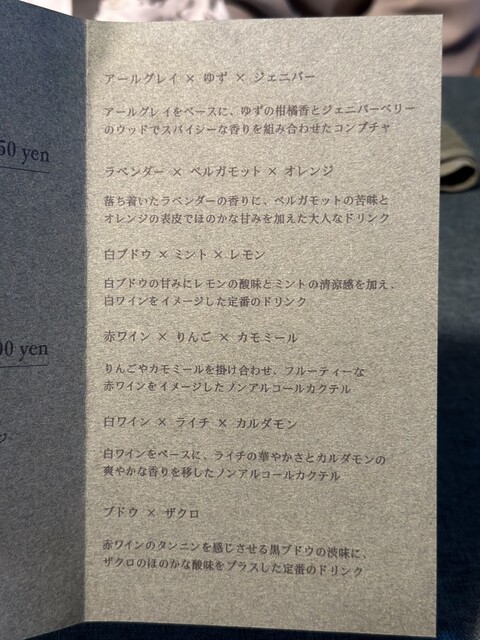 50 yen
00 yen
アールグレイ × ゆず × ジェニパー
アールグレイをベースに、ゆずの柑橘香とジェニパーベリー
のウッドでスパイシーな香りを組み合わせたコンブチャ
ラベンダー × ベルガモット × オレンジ
落ち着いたラベンダーの香りに、ベルガモットの苦味と
オレンジの表皮でほのかな甘みを加えた大人なドリンク
白ブドウ × ミント × レモン
白ブドウの甘みにレモンの酸味とミントの清涼感を加え、
白ワインをイメージした定番のドリンク
赤ワイン × りんご × カモミール
りんごやカモミールを掛け合わせ、フルーティーな
赤ワインをイメージしたノンアルコールカクテル
白ワイン × ライチ × カルダモン
白ワインをベースに、ライチの華やかさとカルダモンの
爽やかな香りを移したノンアルコールカクテル
ブドウ × ザクロ
赤ワインのタンニンを感じさせる黒ブドウの渋味に、
ザクロのほのかな酸味をプラスした定番のドリンク